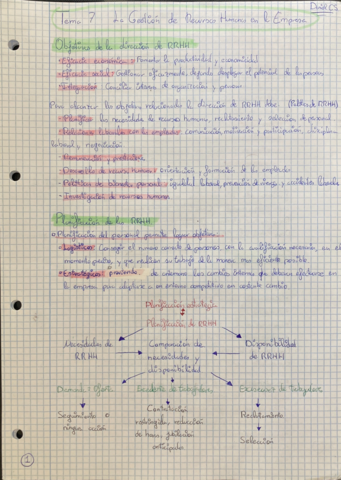 Tema 7 La Gestión de Recursos Humanos en la Empresa
Objetivos de la dirección de RRHH
Eficacia económica: Fomentar la productividad y economicidad
Eficacia social: Gestionar eficazmente
el potencial de las personas
Integración:
Para alcanzar los objetivos la dirección de RRHH debe
Planificar las necesidades de recursos humanos, reclutamiento y selección de personal
Relaciones laborales con los empleados: comunicación, motivación y participación, disciplina
laboral, y negociación
Desarrollo de recursos humanos: orientación y formación de los empleados
Políticas de bienestar personal: igualdad laboral, prevención de riesgos y accidentes laborales
Investigación de recursos humanos
Planificación de los RRHH
Planificación del personal permite lograr objetivos:
Logísticos: Conseguir el número correcto de personas, con la cualificación necesaria, en el
momento preciso, y que realicen su trabajo de la manera más eficiente posible.
Estratégicos: de antemano los cambios internos que deberán efectuarse en
la empresa para adaptarse a un entorno competitivo en constante cambio.
Planificación estratégica
Planificación de RRHH
Necesidades de RRHH
Comparación de necesidades y disponibilidad
Disponibilidad de RRHH
Demanda = Oferta
Excedente de trabajadores
Escasez de trabajadores
Seguimiento o ninguna acción
Contratación restringida, reducción de horas, jubilación anticipada
Reclutamiento
Selección
1